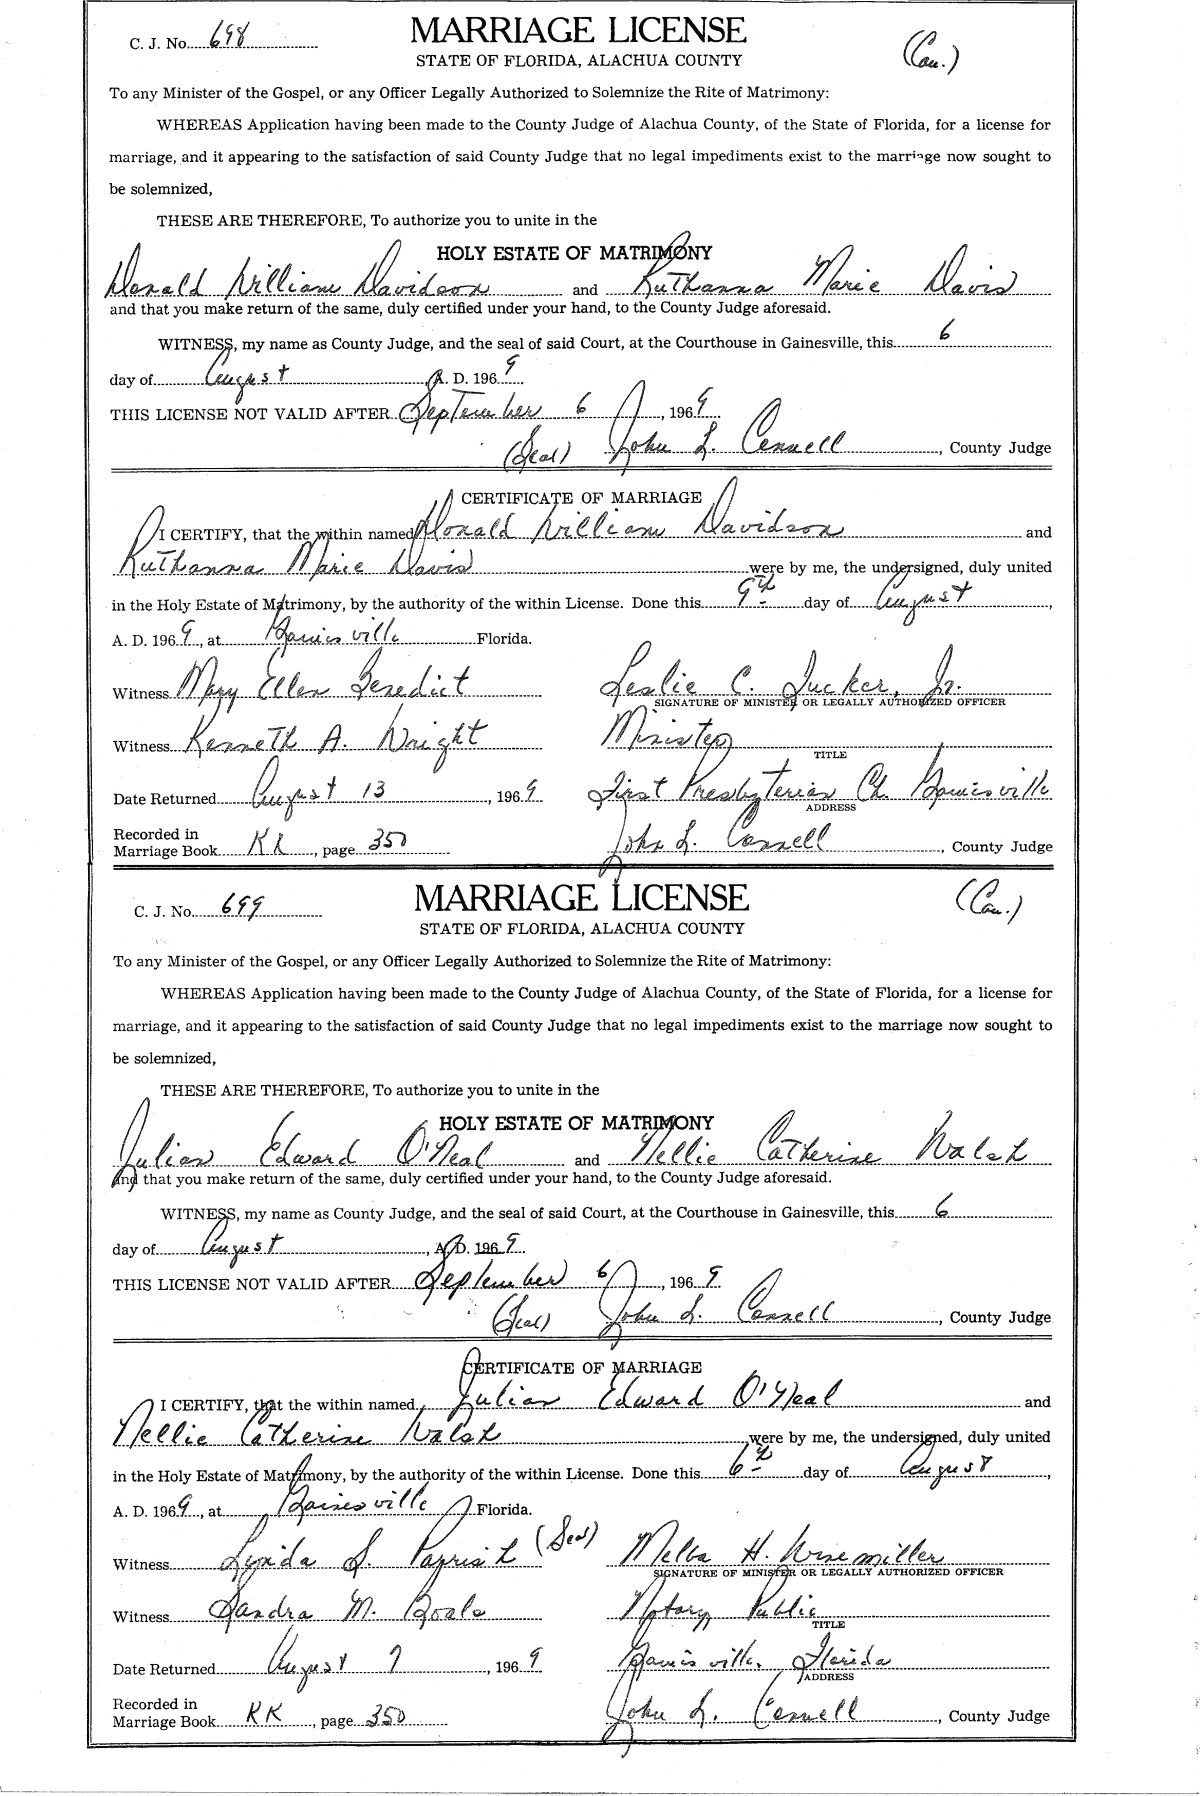 C. J. No. 698
MARRIAGE LICENSE
(Cau.)
STATE OF FLORIDA, ALACHUA COUNTY
To any Minister of the Gospel, or any Officer Legally Authorized to Solemnize the Rite of Matrimony:
WHEREAS Application having been made to the County Judge of Alachua County, of the State of Florida, for a license for
marriage, and it appearing to the satisfaction of said County Judge that no legal impediments exist to the marriage now sought to
be solemnized,
THESE ARE THEREFORE, To authorize you to unite in the
HOLY ESTATE OF MATRIMONY
Donald William Davidson and Ruthanna Marie Davis
and that you make return of the same, duly certified under your hand, to the County Judge aforesaid.
WITNESS, my name as County Judge, and the seal of said Court, at the Courthouse in Gainesville, this 6
day of August A. D. 1969
THIS LICENSE NOT VALID AFTER September 6, 1969
(Seal) John L. Connell, County Judge
CERTIFICATE OF MARRIAGE
I CERTIFY, that the within named Donald William Davidson and
Ruthanna Marie Davis were by me, the undersigned, duly united
in the Holy Estate of Matrimony, by the authority of the within License. Done this 9th day of August,
A. D. 1969, at Gainesville Florida.
Witness Mary Ellen Benedict Leslie C. Tucker, Jr.
SIGNATURE OF MINISTER OR LEGALLY AUTHORIZED OFFICER
Witness Kenneth A. Wright Minister
TITLE
Date Returned August 13, 1969 First Presbyterian Ch. Gainesville
ADDRESS
Recorded in
Marriage Book KK, page 350 John L. Connell, County Judge
C. J. No. 699
MARRIAGE LICENSE
(Cau.)
STATE OF FLORIDA, ALACHUA COUNTY
To any Minister of the Gospel, or any Officer Legally Authorized to Solemnize the Rite of Matrimony:
WHEREAS Application having been made to the County Judge of Alachua County, of the State of Florida, for a license for
marriage, and it appearing to the satisfaction of said County Judge that no legal impediments exist to the marriage now sought to
be solemnized,
THESE ARE THEREFORE, To authorize you to unite in the
HOLY ESTATE OF MATRIMONY
Julian Edward O'Neal and Nellie Catherine Walsh
and that you make return of the same, duly certified under your hand, to the County Judge aforesaid.
WITNESS, my name as County Judge, and the seal of said Court, at the Courthouse in Gainesville, this 6
day of August, A. D. 1969
THIS LICENSE NOT VALID AFTER September 6, 1969
(Seal) John L. Connell, County Judge
CERTIFICATE OF MARRIAGE
I CERTIFY, that the within named Julian Edward O'Neal and
Nellie Catherine Walsh were by me, the undersigned, duly united
in the Holy Estate of Matrimony, by the authority of the within License. Done this 6th day of August,
A. D. 1969, at Gainesville Florida.
Witness Lynda S. Parrish (Seal) Melba H. Wisemiller
SIGNATURE OF MINISTER OR LEGALLY AUTHORIZED OFFICER
Witness Sandra M. Boals Notary Public
TITLE
Date Returned August 7, 1969 Gainesville, Florida
ADDRESS
Recorded in
Marriage Book KK, page 350 John L. Connell, County Judge